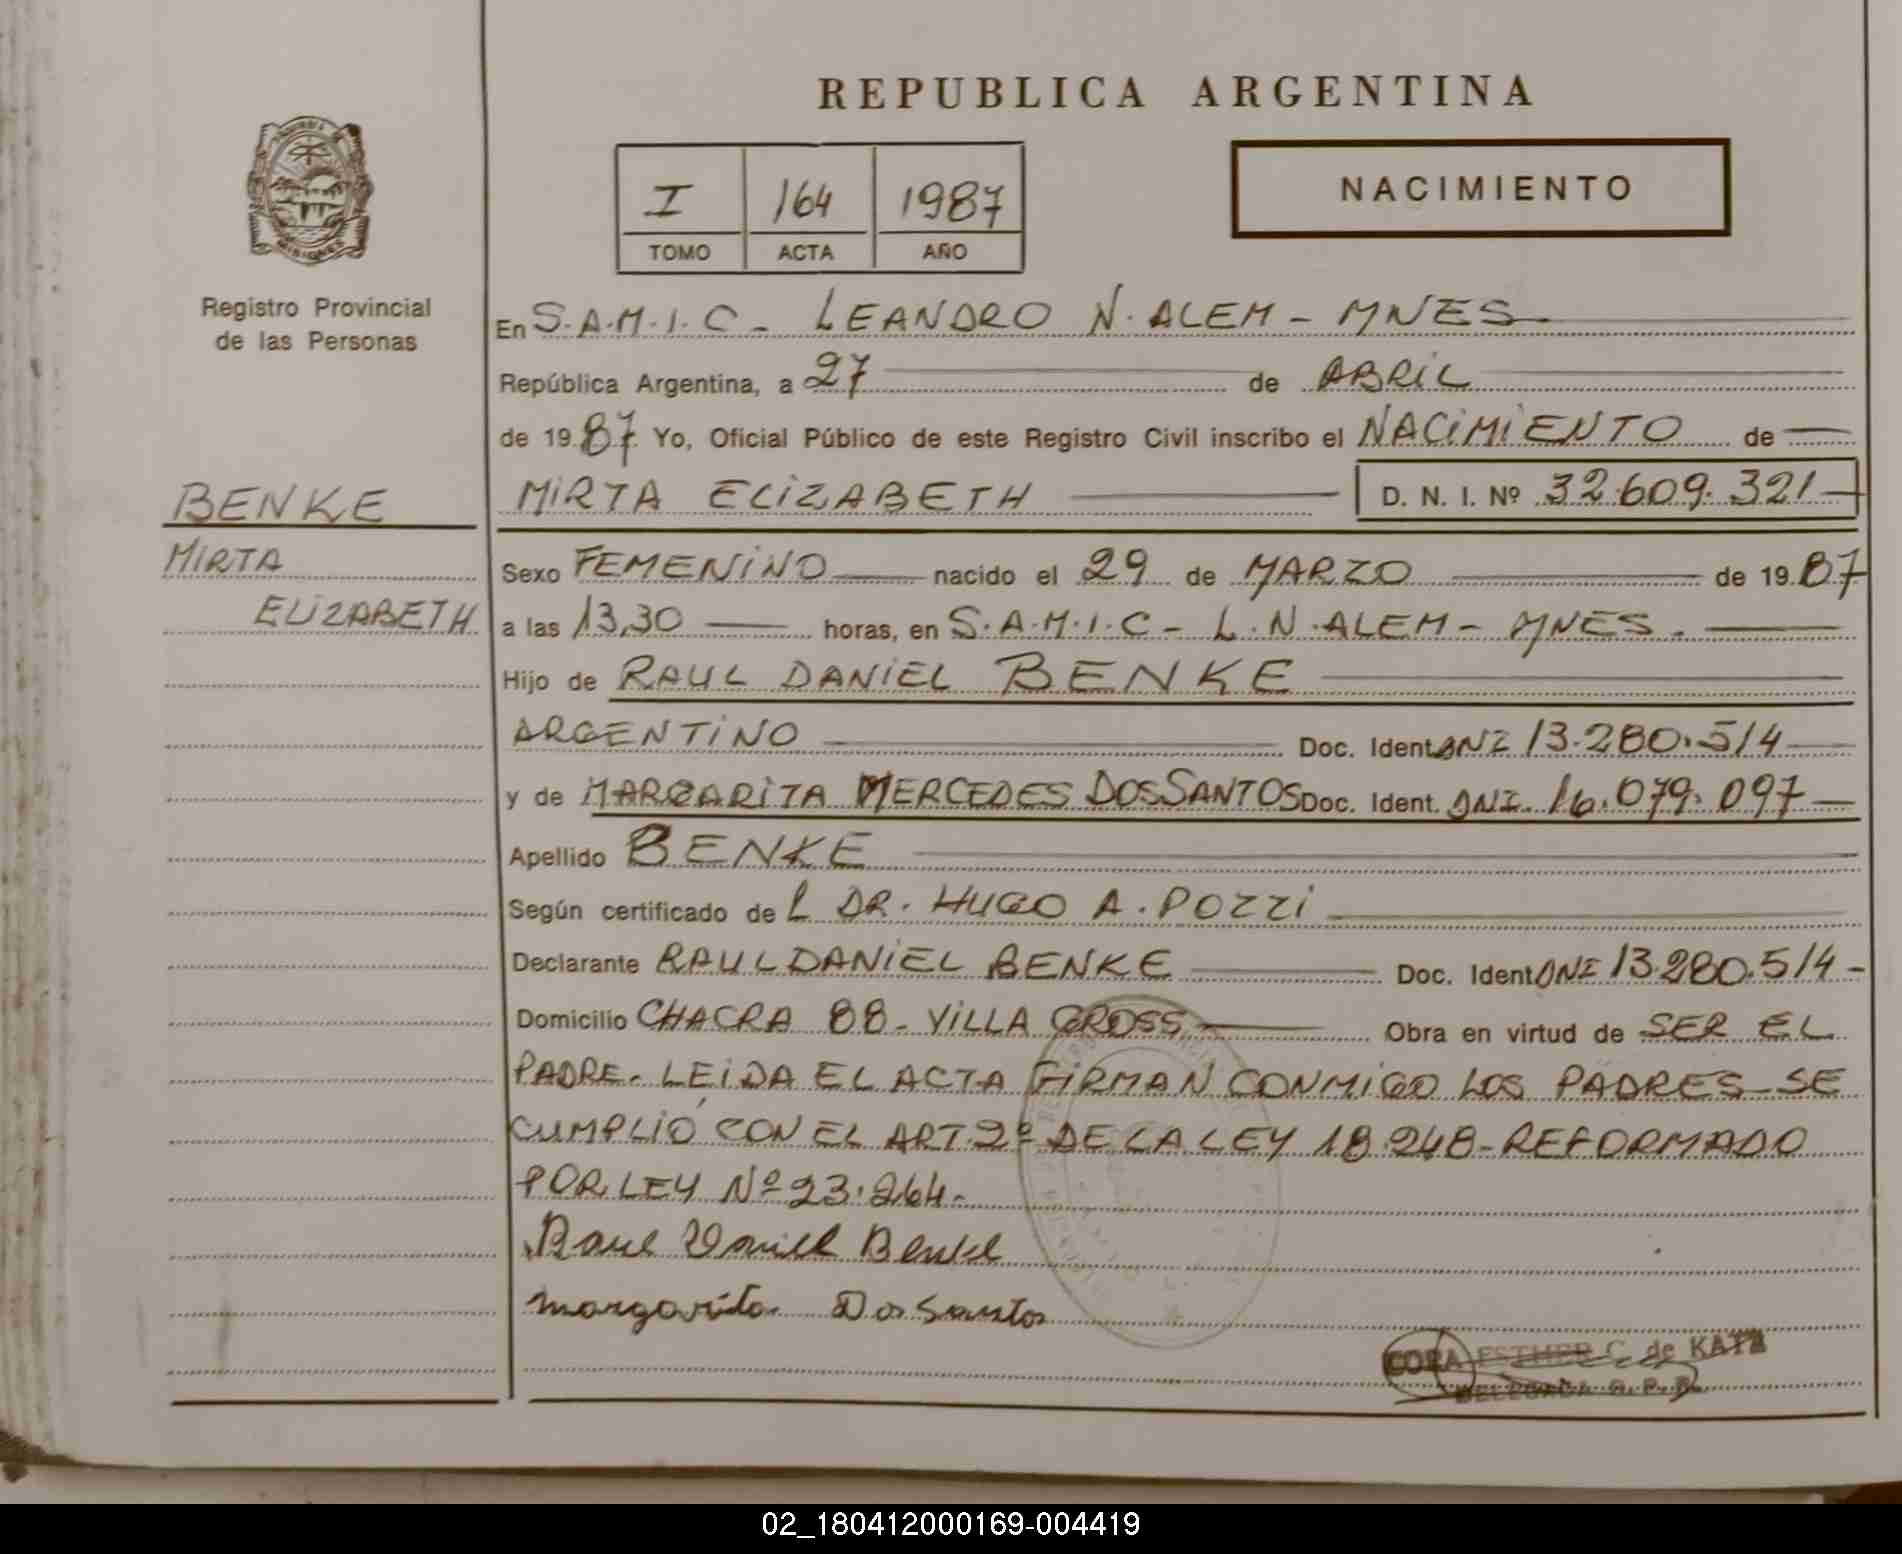 REPUBLICA ARGENTINA
MISIONES
Registro Provincial
de las Personas
I 164 1987
TOMO ACTA AÑO
NACIMIENTO
En S.A.M.I.C - LEANDRO N. ALEM - MNES
República Argentina, a 27 de ABRIL
de 19 87 Yo, Oficial Público de este Registro Civil inscribo el NACIMIENTO de
MIRTA ELIZABETH D. N. I. Nº 32.609.321
BENKE
MIRTA
ELIZABETH
Sexo FEMENINO nacido el 29 de MARZO de 19 87
a las 13,30 horas, en S.A.M.I.C - L.N.ALEM - MNES.
Hijo de RAUL DANIEL BENKE
ARGENTINO Doc. Ident. DNI 13.280.514
y de MARGARITA MERCEDES DOS SANTOS Doc. Ident. DNI. 16.079.097
Apellido BENKE
Según certificado de L DR. HUGO A. POZZI
Declarante RAUL DANIEL BENKE Doc. Ident DNI 13.280.514 -
Domicilio CHACRA 88 - VILLA GROSS Obra en virtud de SER EL
PADRE. LEIDA EL ACTA FIRMAN CONMIGO LOS PADRES - SE
CUMPLIÓ CON EL ART. 2º DE LA LEY 18.248 - REFORMADO
POR LEY Nº 23.264.
Raul Daniel Benke
Margarita Dos Santos
CORA ESTHER C. de KATZ
DELEGADA R. P. P.
02_180412000169-004419